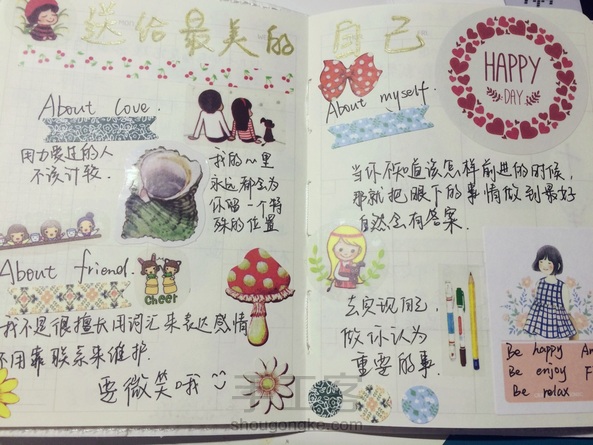 送给最美的 自己
About love.
用力爱过的人
不该计较.
我的心里
永远都会为
你留一个特
殊的位置
About friend.
cheer
我不是很擅长用词汇来表达感情
不用靠联系来维护.
要微笑哦
About myself.
HAPPY
DAY
当你不知道该怎样前进的时候,
那就把眼下的事情做到最好
自然会有答案.
去实现自己,
做你认为
重要的事.
Be happy
Be enjoy
Be relax
手工客
shougongke.com